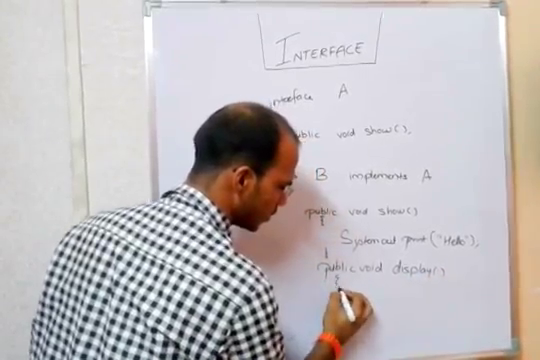 INTERFACE
interface A
public void show();
B implements A
public void show()
{
System.out.print("Hello");
}
public void display()
{